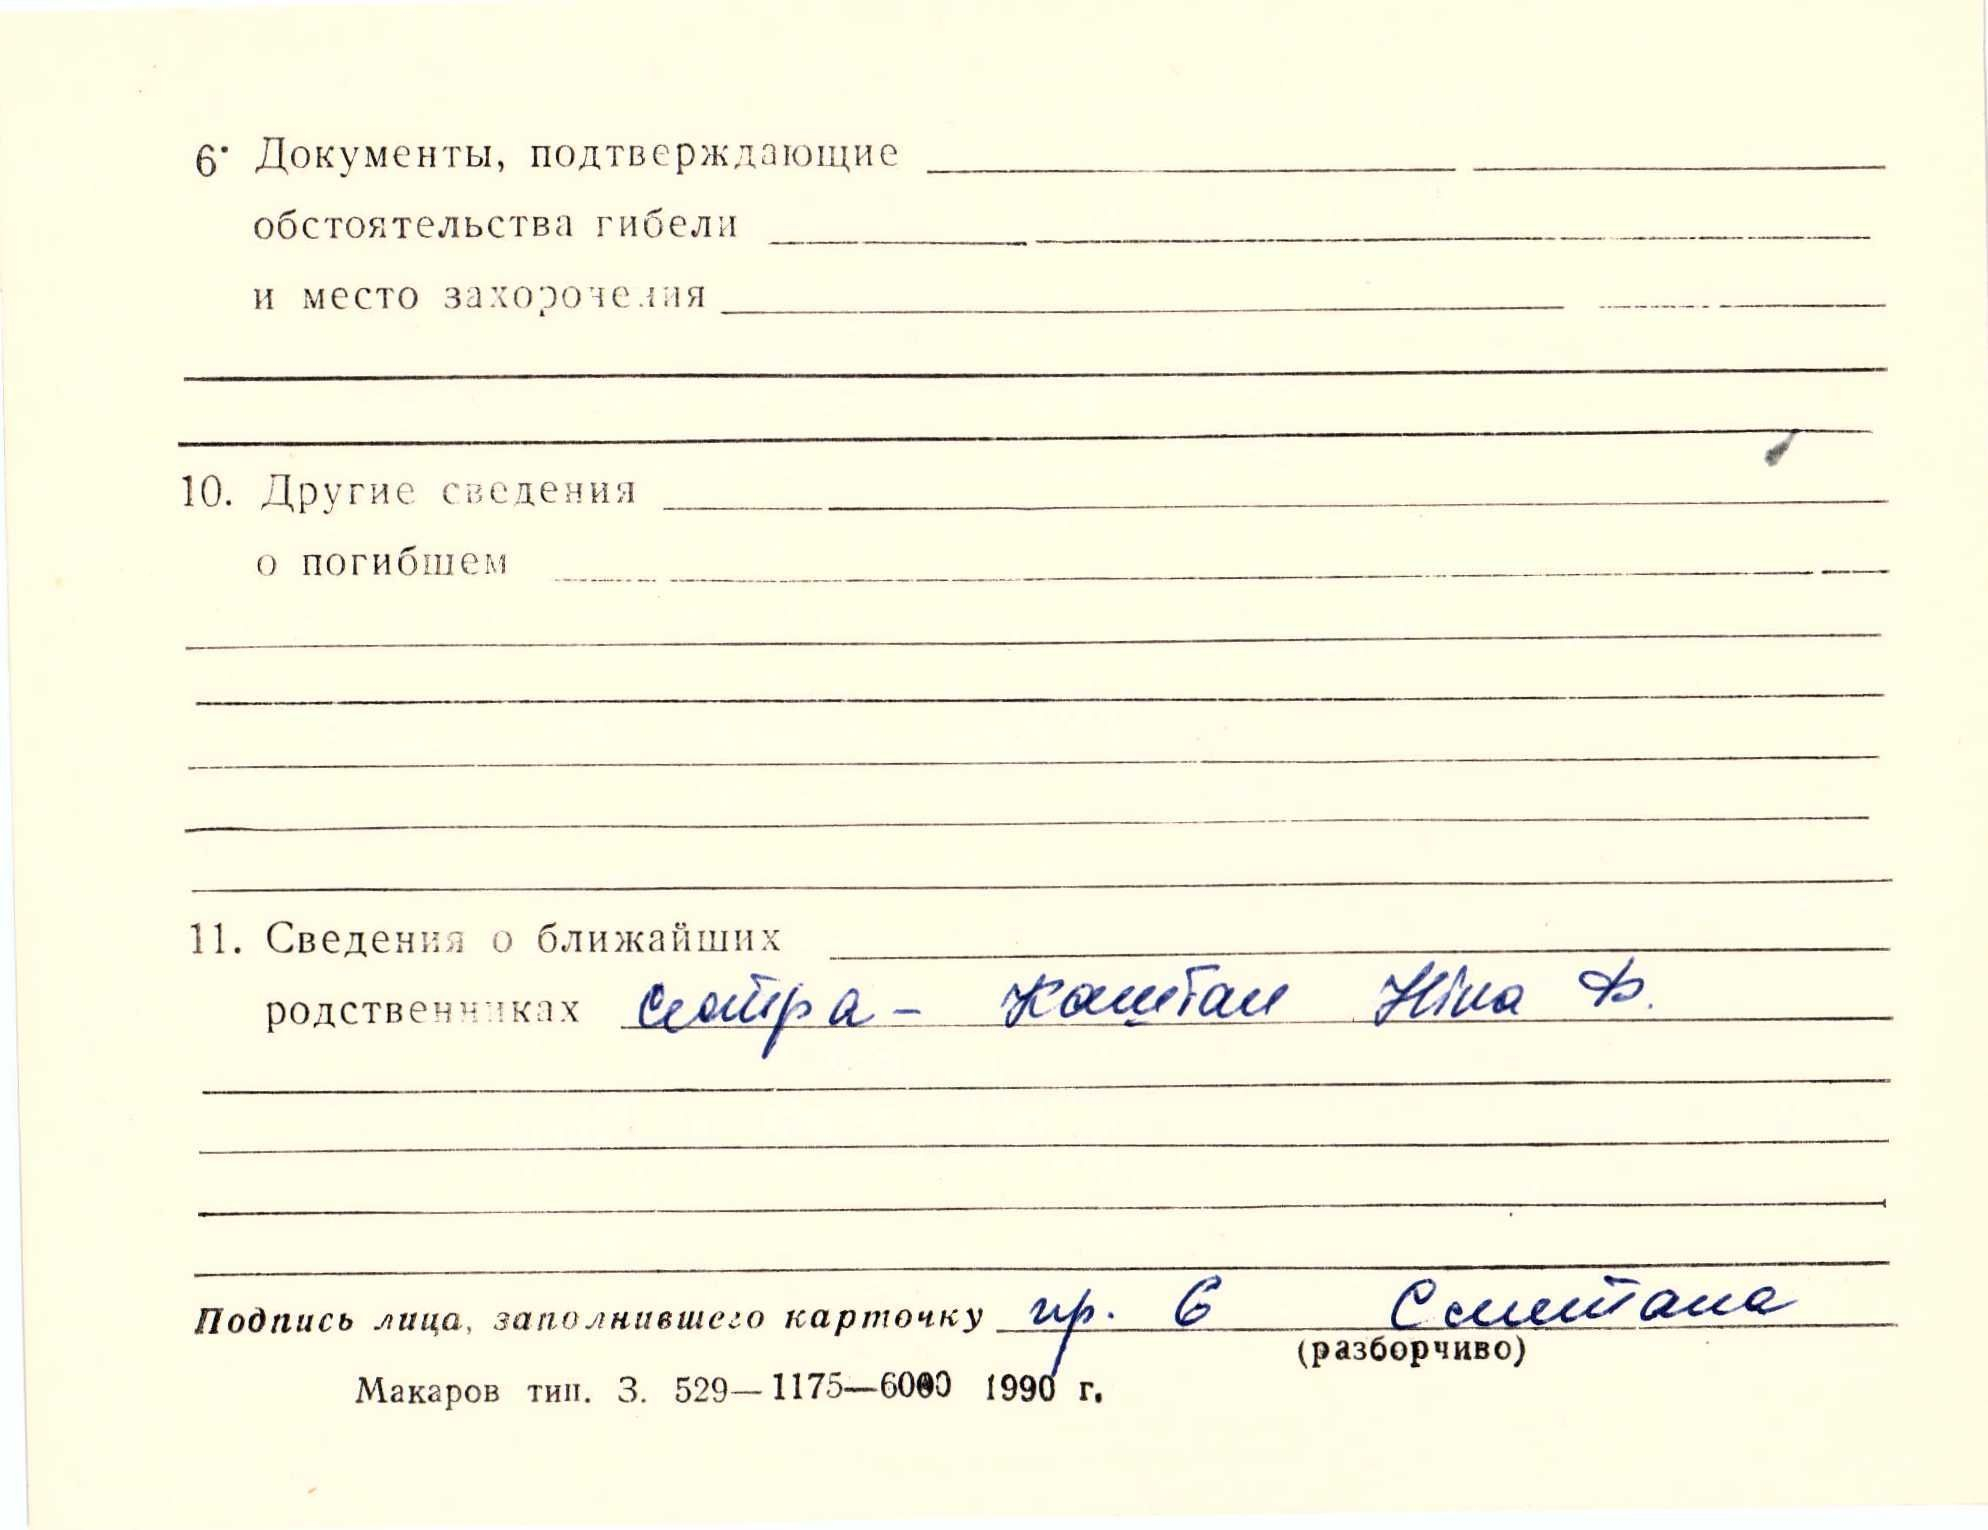 6. Документы, подтверждающие
обстоятельства гибели
и место захоронения
10. Другие сведения
о погибшем
11. Сведения о ближайших
родственниках сестра - Каштан Ніна Ф.
Подпись лица, заполнившего карточку гр. 6 Сметана
(разборчиво)
Макаров тип. З. 529—1175—6000 1990 г.